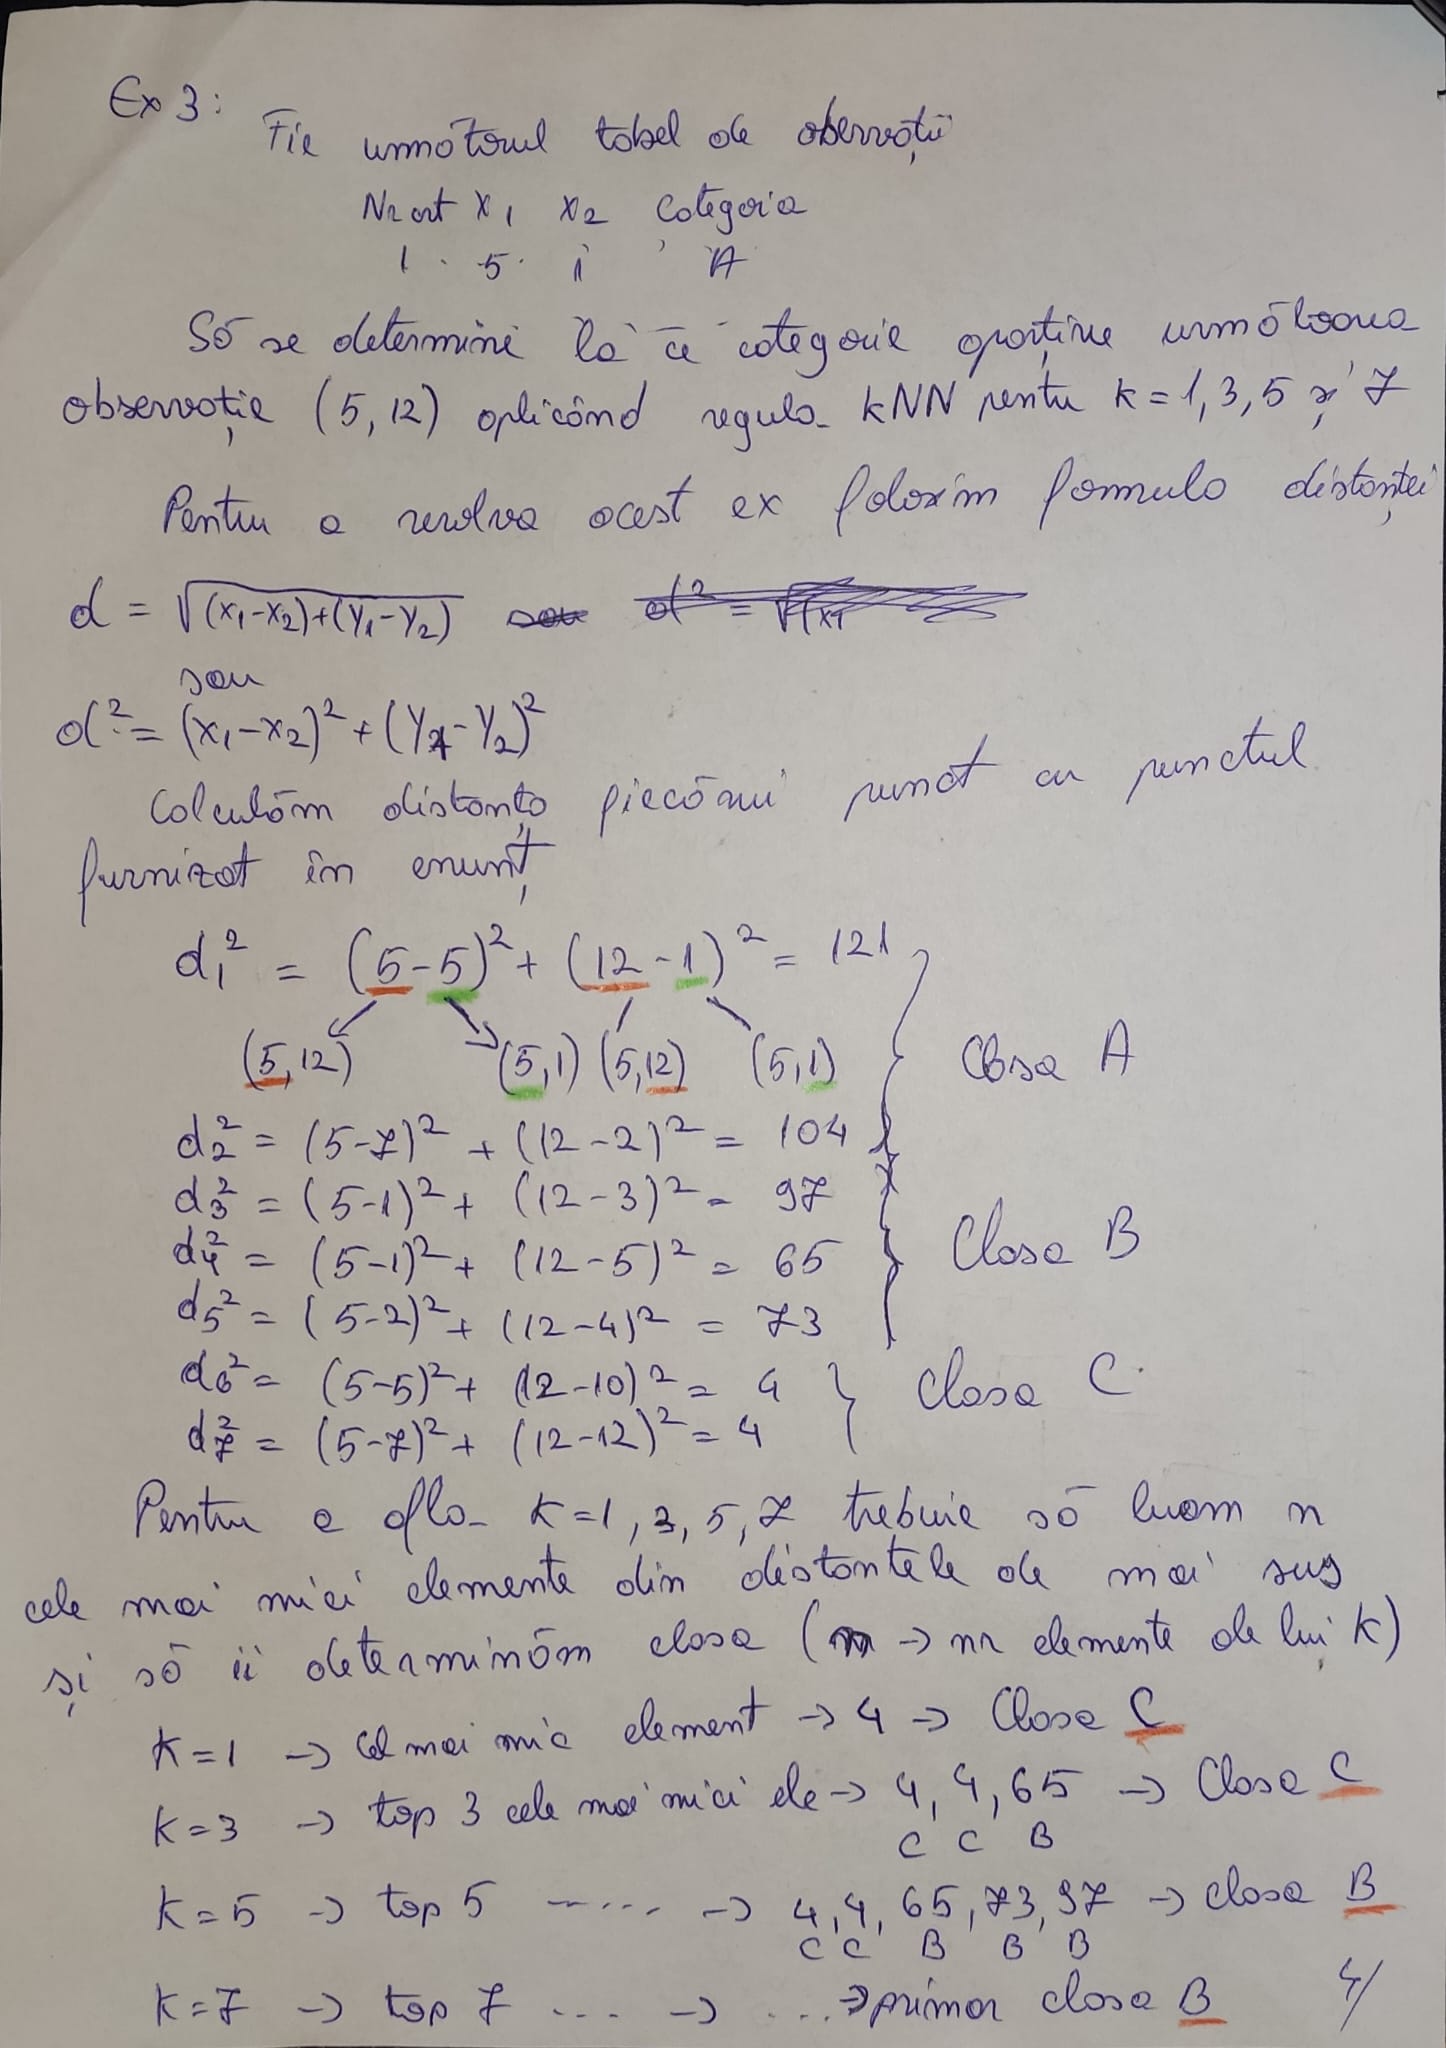 Ex 3:
Fie următorul tabel de observații
Nr crt x1 x2 Categoria
1 5 1 A
Să se determine la ce categorie aparține următoarea
observație (5,12) aplicând regula kNN pentru k=1,3,5 și 7
Pentru a rezolva acest ex folosim formula distanței
d = √(x1-x2)+(y1-y2)
sau
d² = (x1-x2)² + (y1-y2)²
Calculăm distanța fiecărui punct cu punctul
furnizat în enunț
d1² = (5-5)² + (12-1)² = 121
(5,12) (5,1) (5,12) (5,1) Clasa A
d2² = (5-7)² + (12-2)² = 104
d3² = (5-1)² + (12-3)² = 97
d4² = (5-1)² + (12-5)² = 65 Clasa B
d5² = (5-2)² + (12-4)² = 73
d6² = (5-5)² + (12-10)² = 4 Clasa C
d7² = (5-7)² + (12-12)² = 4
Pentru a afla k=1,3,5,7 trebuie să luam n
cele mai mici elemente din distantele de mai sus
și să ii determinăm clasa (n → nr elemente de lui k)
k=1 → cel mai mic element → 4 → Clasa C
k=3 → top 3 cele mai mici ele → 4, 4, 65 → Clasa C
C C B
k=5 → top 5 ----... → 4, 4, 65, 73, 97 → clasa B
C C B B B
k=7 → top 7 ... → ... → primar clasa B
4/